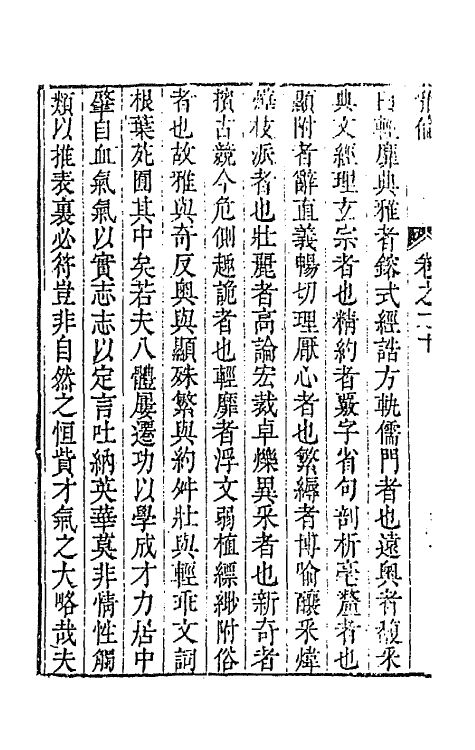 卷之二十
曰輕靡典雅者鎔式經誥方軌儒門者也遠奧者馥采
典文經理玄宗者也精約者覈字省句剖析毫釐者也
顯附者辭直義暢切理厭心者也繁縟者博喻釀采煒
燁枝派者也壯麗者高論宏裁卓爍異采者也新奇者
擯古競今危側趣詭者也輕靡者浮文弱植縹緲附俗
者也故雅與奇反奧與顯殊繁與約舛壯與輕乖文詞
根葉苑囿其中矣若夫八體屢遷功以學成才力居中
肇自血氣氣以實志志以定言吐納英華莫非情性觸
類以推表裏必符豈非自然之恒資才氣之大略哉夫